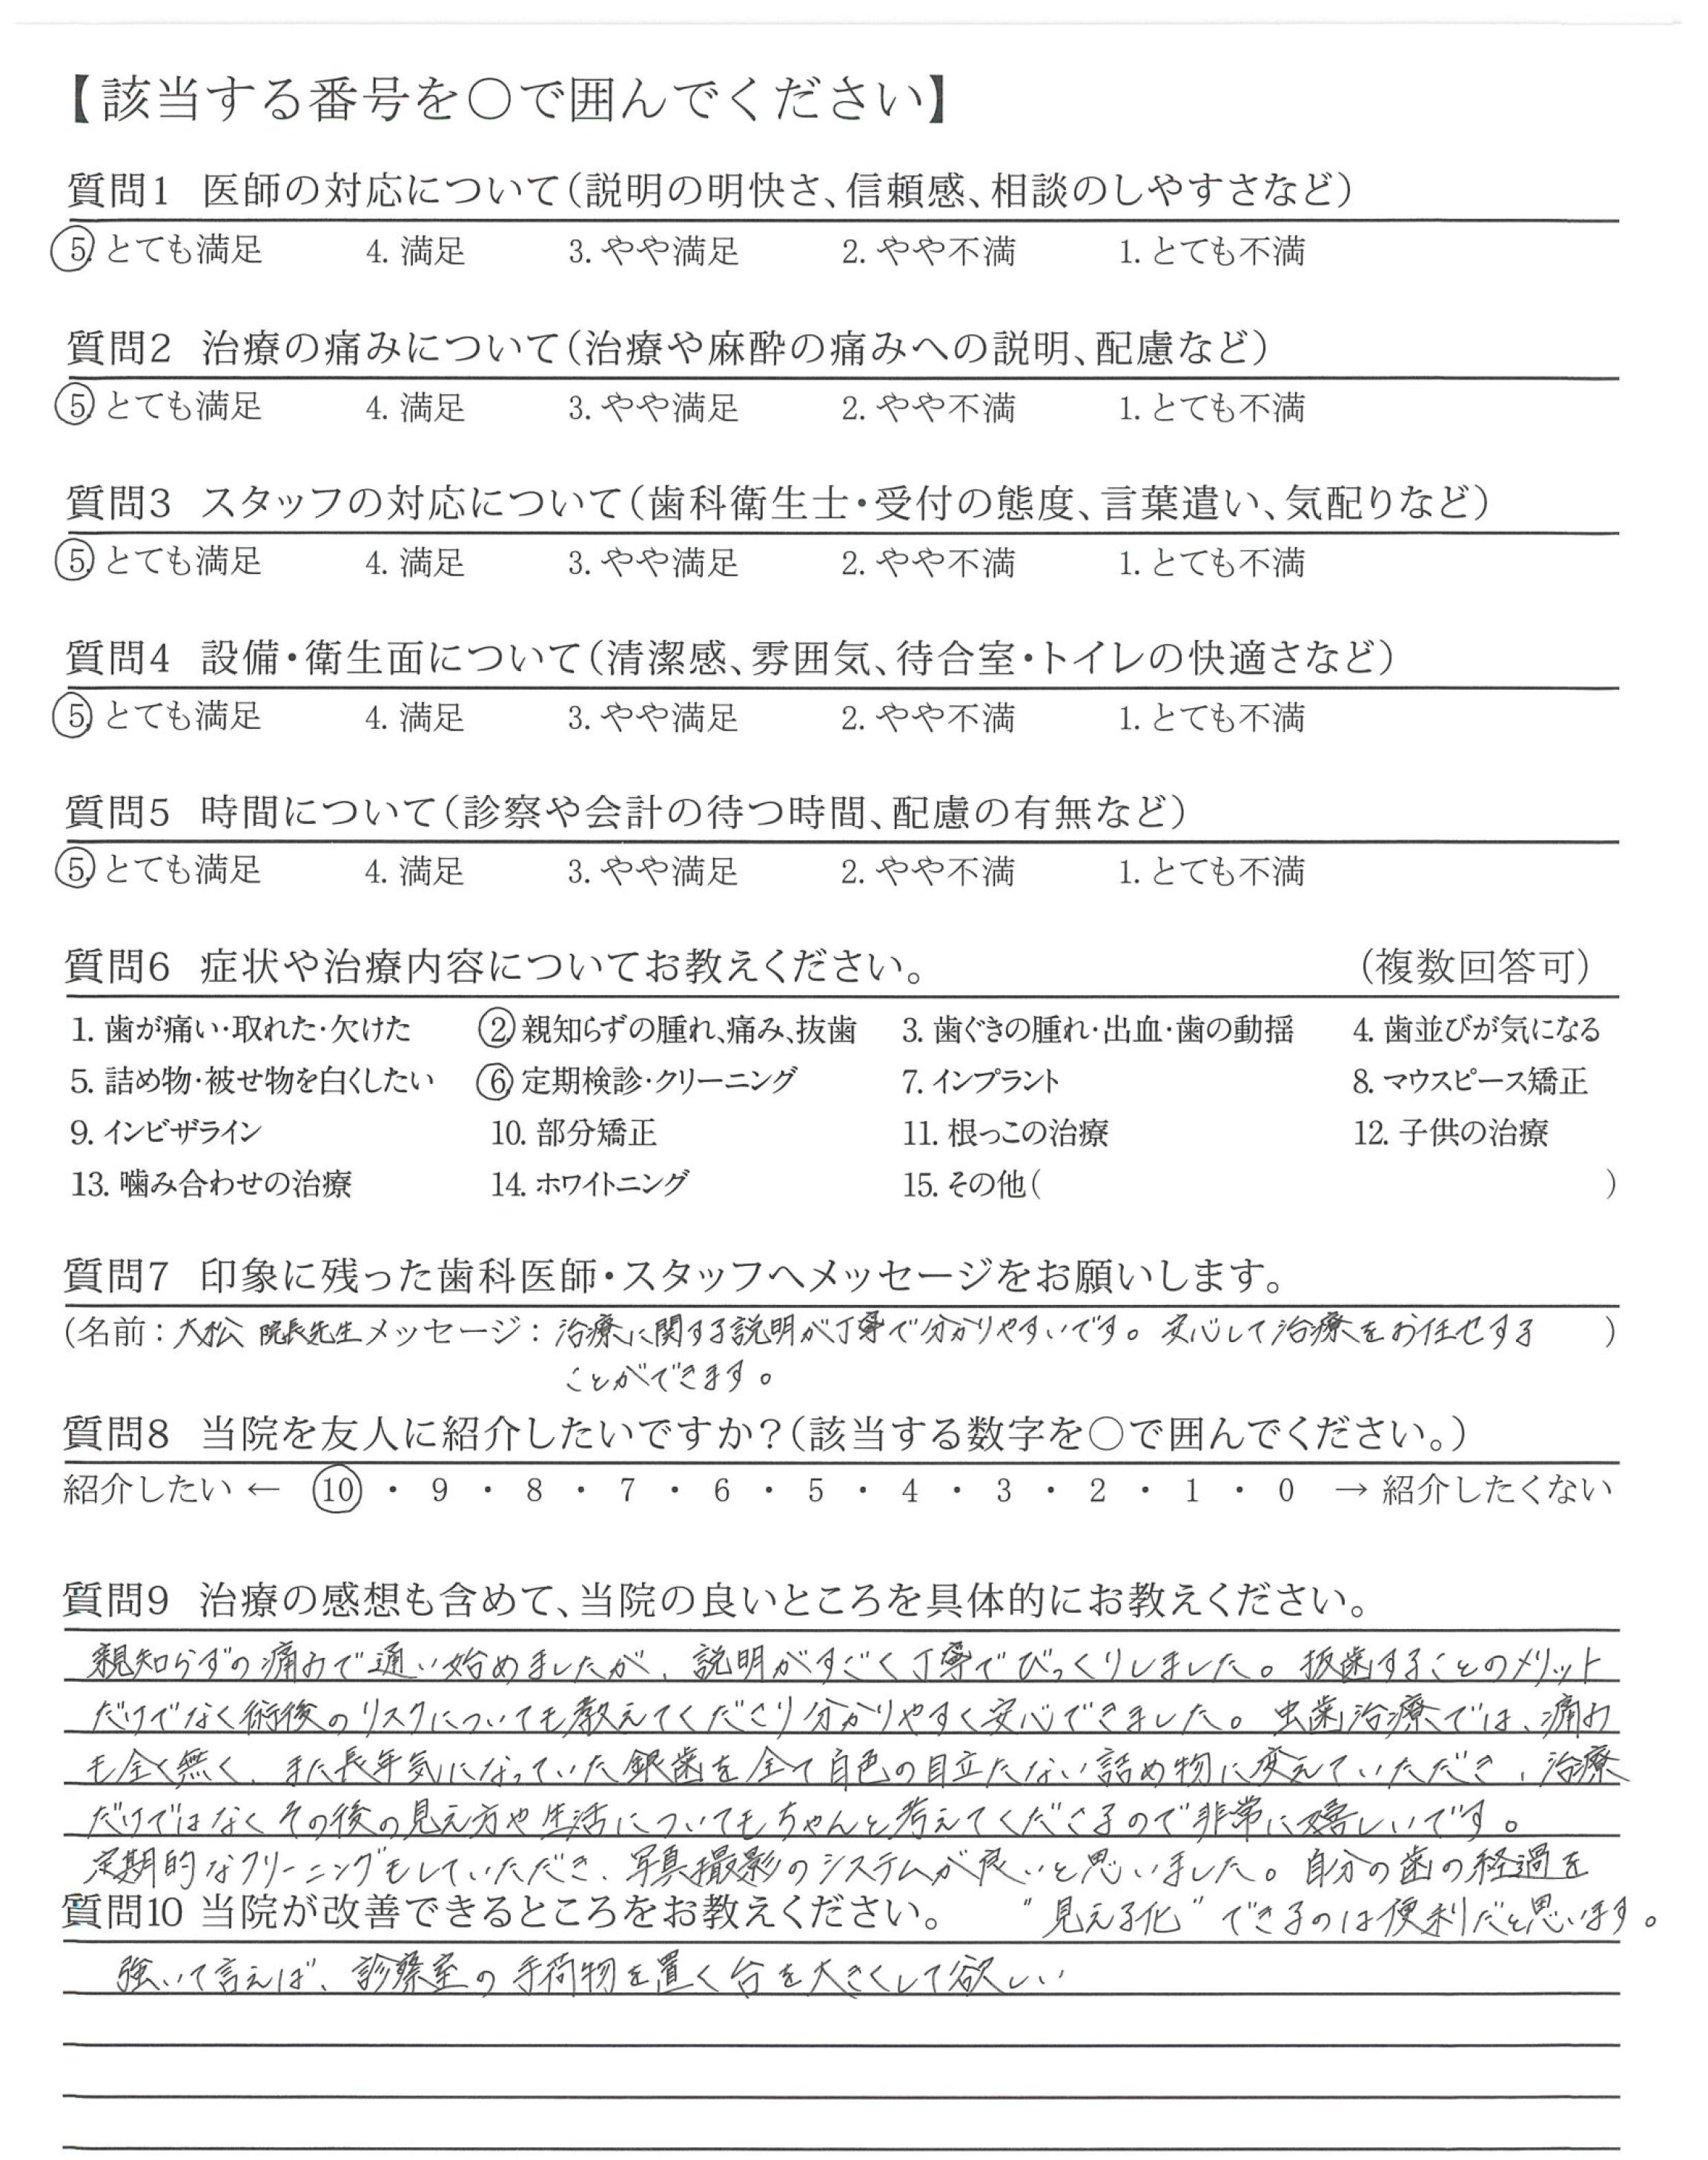 【該当する番号を〇で囲んでください】
質問1 医師の対応について(説明の明快さ、信頼感、相談のしやすさなど)
5. とても満足 4. 満足 3. やや満足 2. やや不満 1. とても不満
質問2 治療の痛みについて(治療や麻酔の痛みへの説明、配慮など)
5. とても満足 4. 満足 3. やや満足 2. やや不満 1. とても不満
質問3 スタッフの対応について(歯科衛生士・受付の態度、言葉遣い、気配りなど)
5. とても満足 4. 満足 3. やや満足 2. やや不満 1. とても不満
質問4 設備・衛生面について(清潔感、雰囲気、待合室・トイレの快適さなど)
5. とても満足 4. 満足 3. やや満足 2. やや不満 1. とても不満
質問5 時間について(診察や会計の待つ時間、配慮の有無など)
5. とても満足 4. 満足 3. やや満足 2. やや不満 1. とても不満
質問6 症状や治療内容についてお教えください。 (複数回答可)
1. 歯が痛い・取れた・欠けた 2. 親知らずの腫れ、痛み、抜歯 3. 歯ぐきの腫れ・出血・歯の動揺 4. 歯並びが気になる
5. 詰め物・被せ物を白くしたい 6. 定期検診・クリーニング 7. インプラント 8. マウスピース矯正
9. インビザライン 10. 部分矯正 11. 根っこの治療 12. 子供の治療
13. 噛み合わせの治療 14. ホワイトニング 15. その他( )
質問7 印象に残った歯科医師・スタッフへメッセージをお願いします。
(名前：大松 院長先生 メッセージ：治療に関する説明が丁寧で分かりやすいです。安心して治療をお任せする )
ことができます。
質問8 当院を友人に紹介したいですか？(該当する数字を〇で囲んでください。)
紹介したい ← 10 ・ 9 ・ 8 ・ 7 ・ 6 ・ 5 ・ 4 ・ 3 ・ 2 ・ 1 ・ 0 → 紹介したくない
質問9 治療の感想も含めて、当院の良いところを具体的にお教えください。
親知らずの痛みで通い始めましたが、説明がすごく丁寧でびっくりしました。抜歯することのメリット
だけでなく術後のリスクについても教えてくださり分かりやすく安心できました。虫歯治療では、痛み
も全く無く、また長年気になっていた銀歯を全て白色の目立たない詰め物に変えていただき、治療
だけではなくその後の見え方や生活についてもちゃんと考えてくださるので非常に嬉しいです。
定期的なクリーニングもしていただき、写真撮影のシステムが良いと思いました。自分の歯の経過を
"見える化"できるのは便利だと思います。
質問10 当院が改善できるところをお教えください。
強いて言えば、診察室の手荷物を置く台を大きくして欲しい